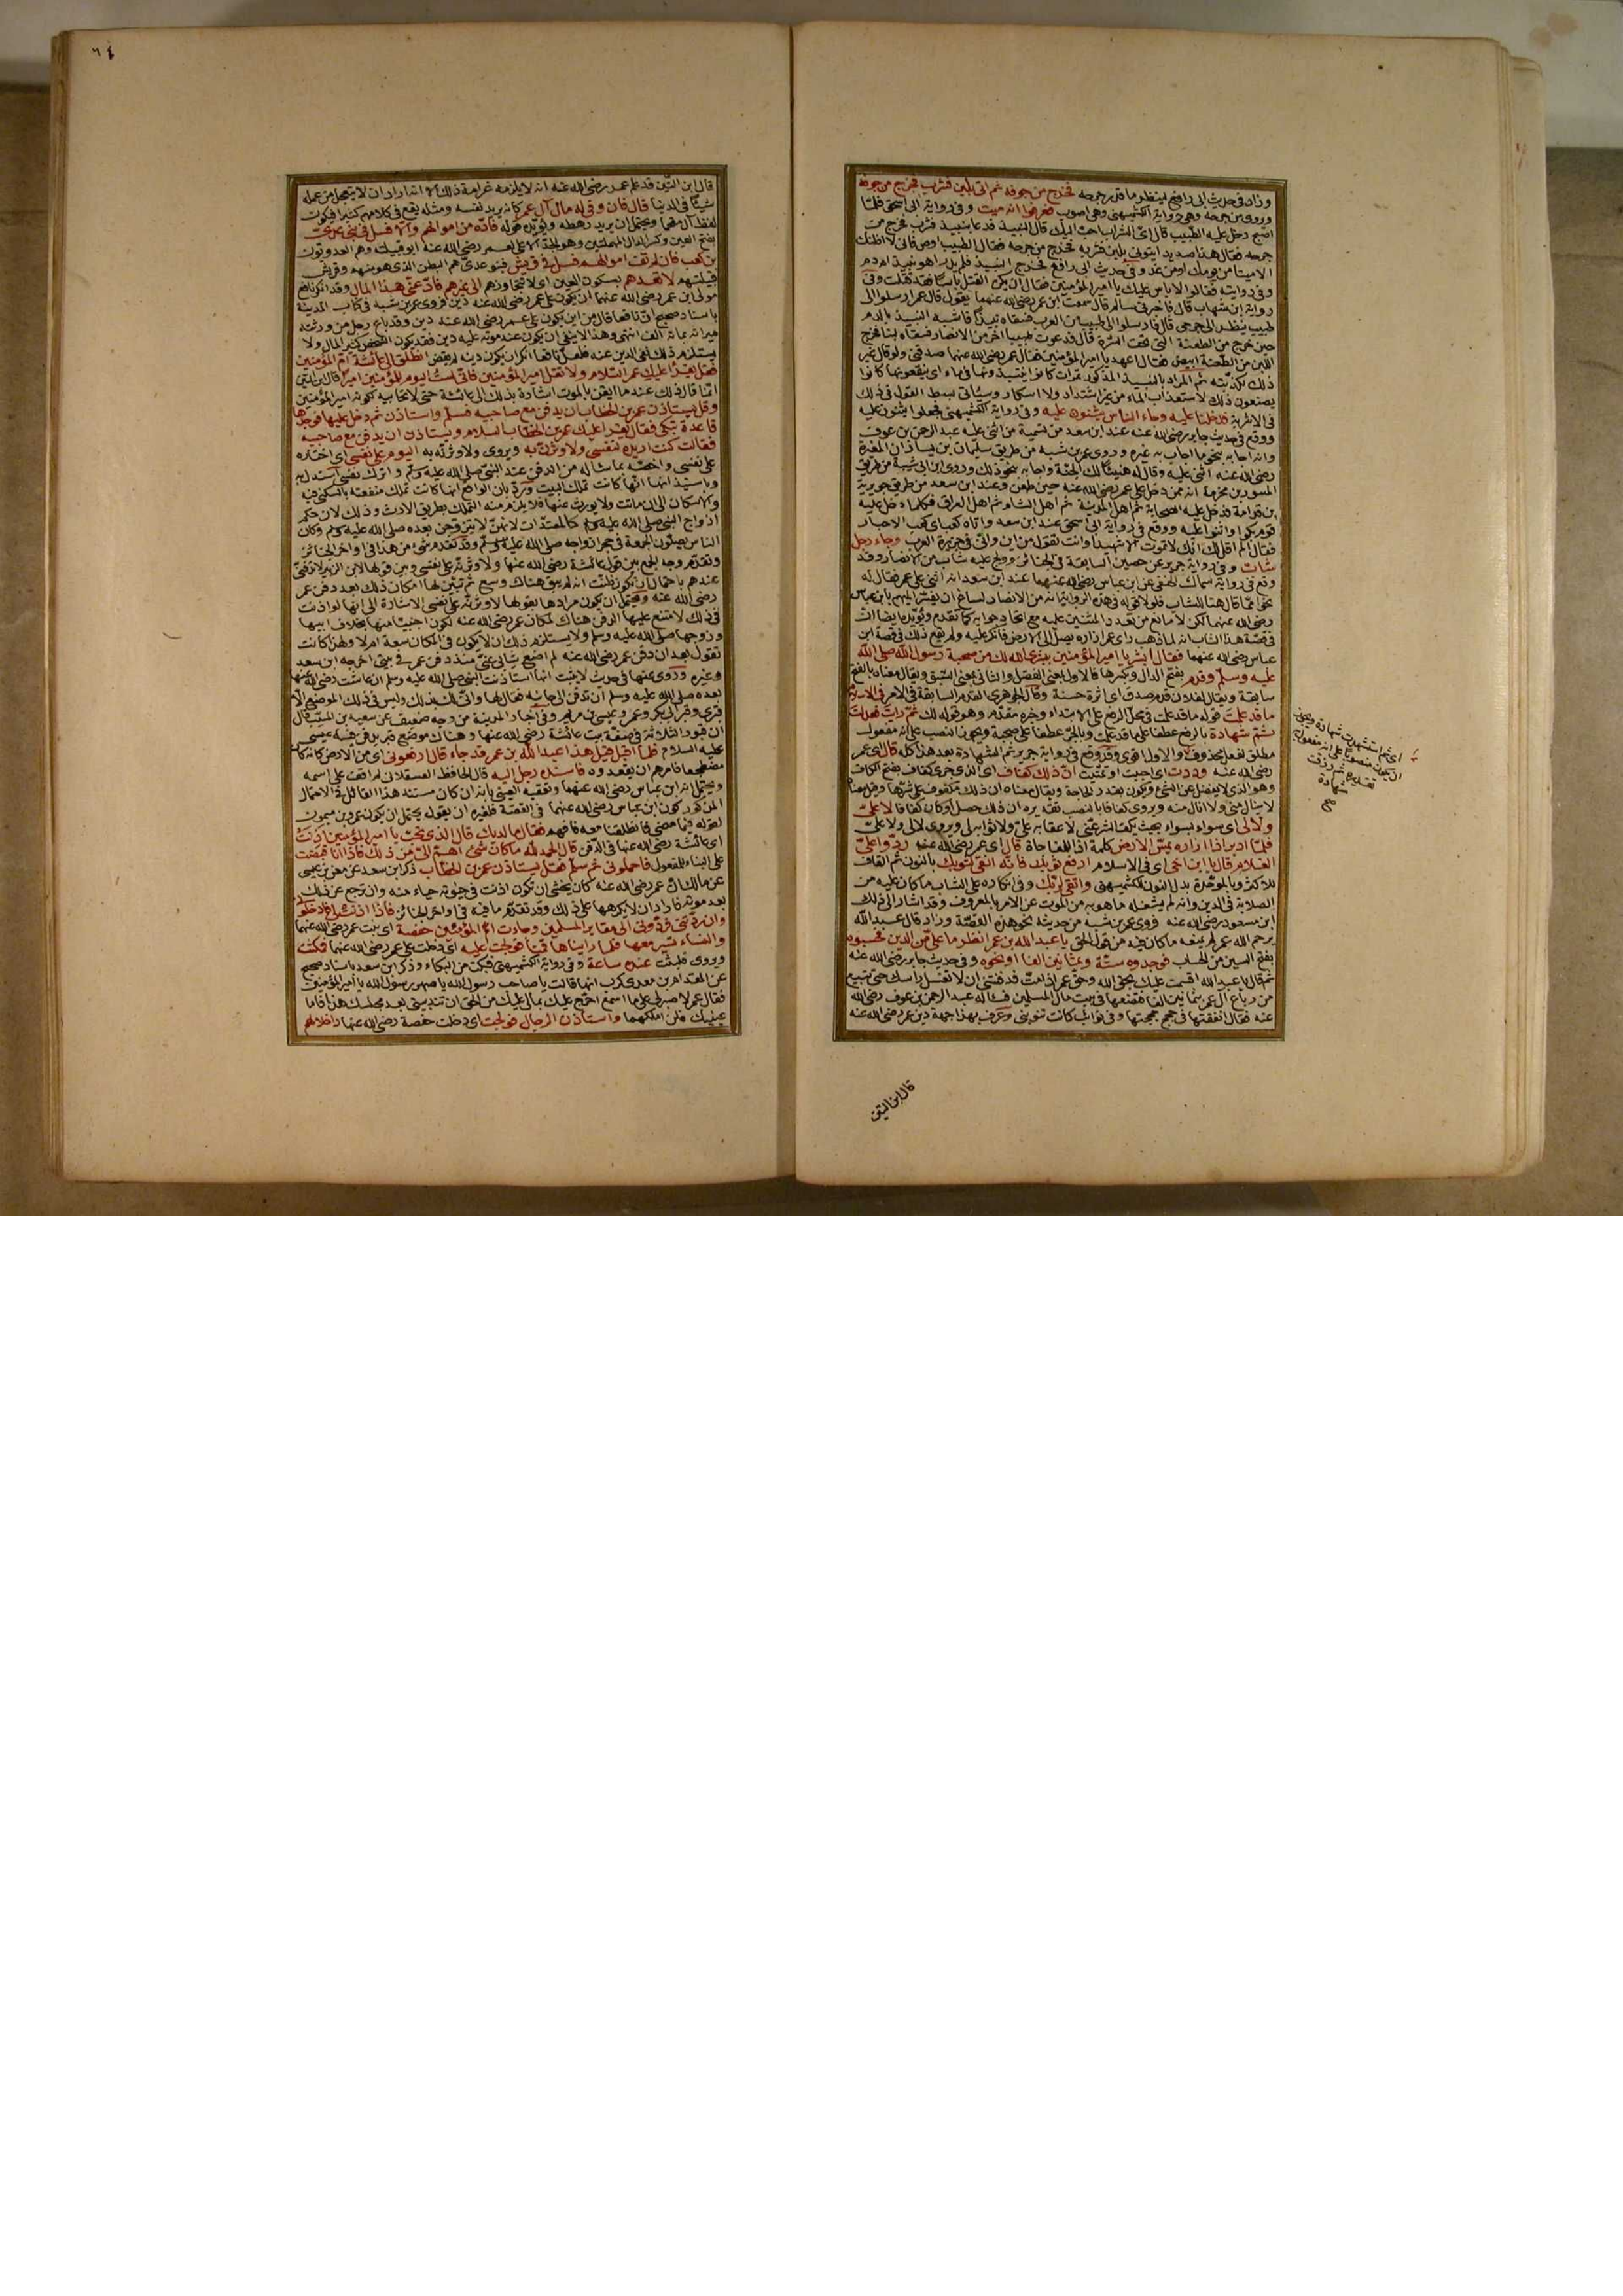 وزاد في حديث ابي رافع لينظر ما قدر جرحه فخرج من جوفه ثم اتي بلبن فشرب فخرج من جوفه
ويروى من جرحه وهي رواية الكشميهني وهي اصوب فعرفوا انه ميت وفي رواية ابي اسحق فلما
اصبح دخل عليه الطبيب قال اي الشراب احب اليك قال النبيذ فدعا بنبيذ فشرب فخرج من
جرحه فقال هذا صديد ايتوني بلبن فشربه فخرج من جرحه فقال الطبيب اوص فاني لا اظنك
الا ميتا من يومك او من غد وفي حديث ابي رافع فخرج النبيذ فلم يدر اهو نبيذ ام دم
وفي روايته فقالوا لا باس عليك يا امير المؤمنين فقال ان يكن القتل باسا فقد قتلت وفي
رواية ابن شهاب قال فاخبرني سالم قال سمعت ابن عمر رضي الله عنهما يقول قال عمر ارسلوا الي
طبيب ينظر الى جرحي قال فارسلوا الى طبيب من العرب فسقاه نبيذا فاشبه النبيذ بالدم
حين خرج من الطعنة التي تحت السرة قال فدعوت طبيبا آخر من الانصار فسقاه لبنا فخرج
اللبن من الطعنة ابيض فقال اعهد يا امير المؤمنين فقال عمر رضي الله عنه صدقني ولو قال غير
ذلك لكذبته ثم المراد بالنبيذ المذكور تمرات كانوا ينبذونها في ماء اي ينقعونها كانوا
يصنعون ذلك لاستعذاب الماء من غير اشتداد ولا اسكار وسيأتي بسط القول في ذلك
في الاشربة فدخلنا عليه وجاء الناس يثنون عليه وفي رواية الكشميهني فجعلوا يثنون عليه
ووقع في حديث جابر رضي الله عنه عند ابن سعد من تسمية من اثنى عليه عبد الرحمن بن عوف
وانه اجابه بنحو ما اجاب به غيره وروى عمر بن شبه من طريق سليمان بن يسار ان المغيرة
رضي الله عنه اثنى عليه وقال له هنيئا لك الجنة واجابه بنحو ذلك وروى ابن ابي شيبة من طريق
المسور بن مخرمة انه ممن دخل على عمر رضي الله عنه حين طعن وعند ابن سعد من طريق جويرية
بن قدامة فدخل عليه الصحابة ثم اهل المدينة ثم اهل الشام ثم اهل العراق فكلما دخل عليه
قوم بكوا واثنوا عليه ووقع في رواية ابي اسحق عند ابن سعد واتاه كعب اي كعب الاحبار
فقال الم اقل لك انك لا تموت الا شهيدا وانت تقول من اين واني في جزيرة العرب وجاء رجل
شاب وفي رواية جرير عن حصين السابقة في الجنائز وولج عليه شاب من الانصار وقد
وقع في رواية سماك الحنفي عن ابن عباس رضي الله عنهما عند ابن سعد انه اثنى على عمر فقال له
نحوا مما قال هنا للشاب فلولا قوله في هذه الرواية انه من الانصار لساغ ان يفسر المبهم بابن عباس
رضي الله عنهما لكن لا مانع من تعدد المثنين عليه مع اتحاد جوابه كما تقدم ويؤيده ايضا ان
في قصة هذا الشاب انه لما ذهب راى عمر ازاره يصل الى الارض فانكر عليه ولم يقع ذلك في قصة ابن
عباس رضي الله عنهما فقال ابشر يا امير المؤمنين ببشرى الله لك من صحبة رسول الله صلى الله
عليه وسلم وقدم بفتح الدال وكسرها فالاول بمعنى الفضل والثاني بمعنى السبق ويقال معناه بالفتح
سابقة ويقال لفلان قدم صدق اي اثرة حسنة وقال الجوهري القدم السابقة في الامر في الاسلام
ما قد علمت قوله ما قد علمت في محل الرفع على الابتداء وخبره مقدم وهو قوله لك ثم وليت فعدلت
ثم شهادة بالرفع عطفا على ما قد علمت وبالجر عطفا على صحبة ويجوز النصب على انه مفعول
مطلق لفعل محذوف والاول اقوى وقد وقع في رواية جرير ثم الشهادة بعد هذا كله قال اي عمر
رضي الله عنه وددت اي احببت او تمنيت ان ذلك كفاف اي الذي جرى كفاف بفتح الكاف
وهو الذي لا يفضل عن الشيء ويكون بقدر الحاجة ويقال معناه ان ذلك مكفوف عني شرها وقيل معناه
لا ينال مني ولا انال منه ويروى كفافا بالنصب تقديره ان ذلك حصل او كان كفافا لا علي
ولا لي اي سواء بسواء بحيث يكف الشر عني لا عقابه علي ولا ثوابه لي ويروى لا لي ولا علي
فلما ادبر اذا ازاره يمس الارض كلمة اذا للمفاجاة قال اي عمر رضي الله عنه ردوا علي
الغلام قال يا ابن اخي اي في الاسلام ارفع ثوبك فانه انقى لثوبك بالنون ثم القاف
للاكثر وبالموحدة بدل النون للكشميهني واتقى لربك وفي انكاره على الشاب ما كان عليه من
الصلابة في الدين وانه لم يشغله ما هو به من الموت عن الامر بالمعروف وقد اشار الى ذلك
ابن مسعود رضي الله عنه فروى عمر بن شبه من حديثه نحو هذه القصة وزاد قال عبد الله
يرحم الله عمر لم يمنعه ما كان فيه من قول الحق يا عبد الله بن عمر انظر ما علي من الدين فحسبوه
بفتح السين من الحساب فوجدوه ستة وثمانين الفا او نحوه وفي حديث جابر رضي الله عنه
ثم قال يا عبد الله اقسمت عليك بحق الله وحق عمر اذا مت فدفنتني ان لا تغسل راسك حتى تبيع
من رباع آل عمر بثمانين الفا فتضعها في بيت مال المسلمين فساله عبد الرحمن بن عوف رضي الله
عنه فقال انفقتها في حجج حججتها وفي نوائب كانت تنوبني وعرف بهذا جهة دين عمر رضي الله عنه
اي ثم استشهدت شهادة ويجوز
ان يكون منصوبا على انه مفعول به
تقديره ثم رزقت
شهادة
صح
قال ابن التين
٦٤
قال ابن التين قد علم عمر رضي الله عنه انه لا يلزمه غرامة ذلك الا انه اراد ان لا يتعجل من عمله
شيئا في الدنيا قال فان وفى له مال آل عمر كانه يريد نفسه ومثله يقع في كلامهم كثيرا فيكون
لفظ آل مقحما ويحتمل ان يريد رهطه ويؤيده قوله فاده من اموالهم والا فسل في بني عدي
بفتح العين وكسر الدال المهملتين وهو الجد الاعلى لعمر رضي الله عنه ابو قبيلته وهم العدويون
بن كعب فان لم تف اموالهم فسل في قريش فبنو عدي هم البطن الذي هو منهم وقريش
قبيلتهم لا تعدهم بسكون العين اي لا تتجاوزهم الى غيرهم فاد عني هذا المال وقد انكر نافع
مولى ابن عمر رضي الله عنهما ان يكون على عمر رضي الله عنه دين فروى عمر بن شبه في كتاب المدينة
باسناد صحيح ان نافعا قال من اين يكون على عمر رضي الله عنه دين وقد باع رجل من ورثته
ميراثه بمائة الف انتهى وهذا لا ينفي ان يكون عند موته عليه دين فقد يكون الشخص كثير المال ولا
يستلزم ذلك نفي الدين عنه فلعل نافعا انكر ان يكون دينه لم يقض انطلق الى عائشة ام المؤمنين
فقل يقرأ عليك عمر السلام ولا تقل امير المؤمنين فاني لست اليوم للمؤمنين اميرا قال ابن التين
انما قال ذلك عندما ايقن بالموت اشارة بذلك الى عائشة حتى لا تحابيه لكونه امير المؤمنين
وقل يستاذن عمر بن الخطاب ان يدفن مع صاحبيه فسلم واستاذن ثم دخل عليها فوجدها
قاعدة تبكي فقال يقرأ عليك عمر بن الخطاب السلام ويستاذن ان يدفن مع صاحبيه
فقالت كنت اريده لنفسي ولاوثرنه به ويروى ولاوثرنه به اليوم على نفسي اي اختاره
على نفسي واخصه بما ساله من الدفن عند النبي صلى الله عليه وسلم واترك نفسي استدل به
وباستيذانها انها كانت تملك البيت ورد بان الواقع انها كانت تملك منفعته بالسكنى فيه
والاسكان الى ان ماتت ولا يورث عنها فلا يلزم منه التملك بطريق الارث وذلك لان حكم
ازواج النبي صلى الله عليه وسلم كالمعتدات لانهن لا يتزوجن بعده صلى الله عليه وسلم وكان
الناس يصلون الجمعة في حجر ازواجه صلى الله عليه وسلم وقد تقدم شيء من هذا في اواخر الجنائز
وتقدم وجه الجمع بين قول عائشة رضي الله عنها ولاوثرنه على نفسي وبين قولها لابن الزبير لا تدفني
عندهم باحتمال ان يكون ظنت انه لم يبق هناك وسع ثم تبين لها امكان ذلك بعد دفن عمر
رضي الله عنه ويحتمل ان يكون مرادها بقولها لاوثرنه على نفسي الاشارة الى انها لو اذنت
في ذلك لامتنع عليها الدفن هناك لمكان عمر رضي الله عنه لكونه اجنبيا منها بخلاف ابيها
وزوجها صلى الله عليه وسلم ولا يستلزم ذلك ان لا يكون في المكان سعة ام لا ولهذا كانت
تقول بعد ان دفن عمر رضي الله عنه لم اضع ثيابي عني منذ دفن عمر في بيتي اخرجه ابن سعد
وغيره وروي عنها في حديث لا يثبت انها استاذنت النبي صلى الله عليه وسلم ان عاشت رضي الله عنها
بعده صلى الله عليه وسلم ان تدفن الى جانبه فقال لها وانى لك بذلك وليس في ذلك الموضع الا
قبري وقبر ابي بكر وعمر وعيسى بن مريم وفي اخبار المدينة من وجه ضعيف عن سعيد بن المسيب قال
ان قبور الثلاثة في صفة بيت عائشة رضي الله عنها وهناك موضع قبر يدفن فيه عيسى
عليه السلام فلما اقبل قيل هذا عبد الله بن عمر قد جاء قال ارفعوني اي من الارض كانه كان
مضطجعا فامرهم ان يقعدوه فاسنده رجل اليه قال الحافظ العسقلاني لم اقف على اسمه
ويحتمل انه ابن عباس رضي الله عنهما وتعقبه العيني بانه ان كان مستند هذا القائل في الاحتمال
المذكور كون ابن عباس رضي الله عنهما في القصة فلغيره ان يقول يحتمل ان يكون عمرو بن ميمون
لقوله فيما مضى فانطلقنا معه فافهم فقال ما لديك قال الذي تحب يا امير المؤمنين اذنت
اي عائشة رضي الله عنها في الدفن قال الحمد لله ما كان شيء اهم الي من ذلك فاذا انا قضيت
على البناء للمفعول فاحملوني ثم سلم فقل يستاذن عمر بن الخطاب ذكر ابن سعد عن معن بن عيسى
عن مالك ان عمر رضي الله عنه كان يخشى ان تكون اذنت في حيوته حياء منه وان ترجع عن ذلك
بعد موته فاراد ان لا يكرهها على ذلك وقد تقدم ما فيه في اواخر الجنائز فاذا اذنت لي فادخلوني
وان ردتني فردوني الى مقابر المسلمين وجاءت ام المؤمنين حفصة اي بنت عمر رضي الله عنهما
والنساء تسير معها فلما رايناها قمنا فولجت عليه اي دخلت على عمر رضي الله عنهما فبكت
ويروى فلبثت عنده ساعة وفي رواية الكشميهني فبكت من البكاء وذكر ابن سعد باسناد صحيح
عن المقدام بن معدي كرب انها قالت يا صاحب رسول الله يا صهر رسول الله يا امير المؤمنين
فقال عمر لا صبر لي على ما اسمع احرج عليك بما لي عليك من الحق ان تندبيني بعد مجلسك هذا فاما
عينيك فلن املكهما واستاذن الرجال فولجت اي دخلت حفصة رضي الله عنها داخلا لهم